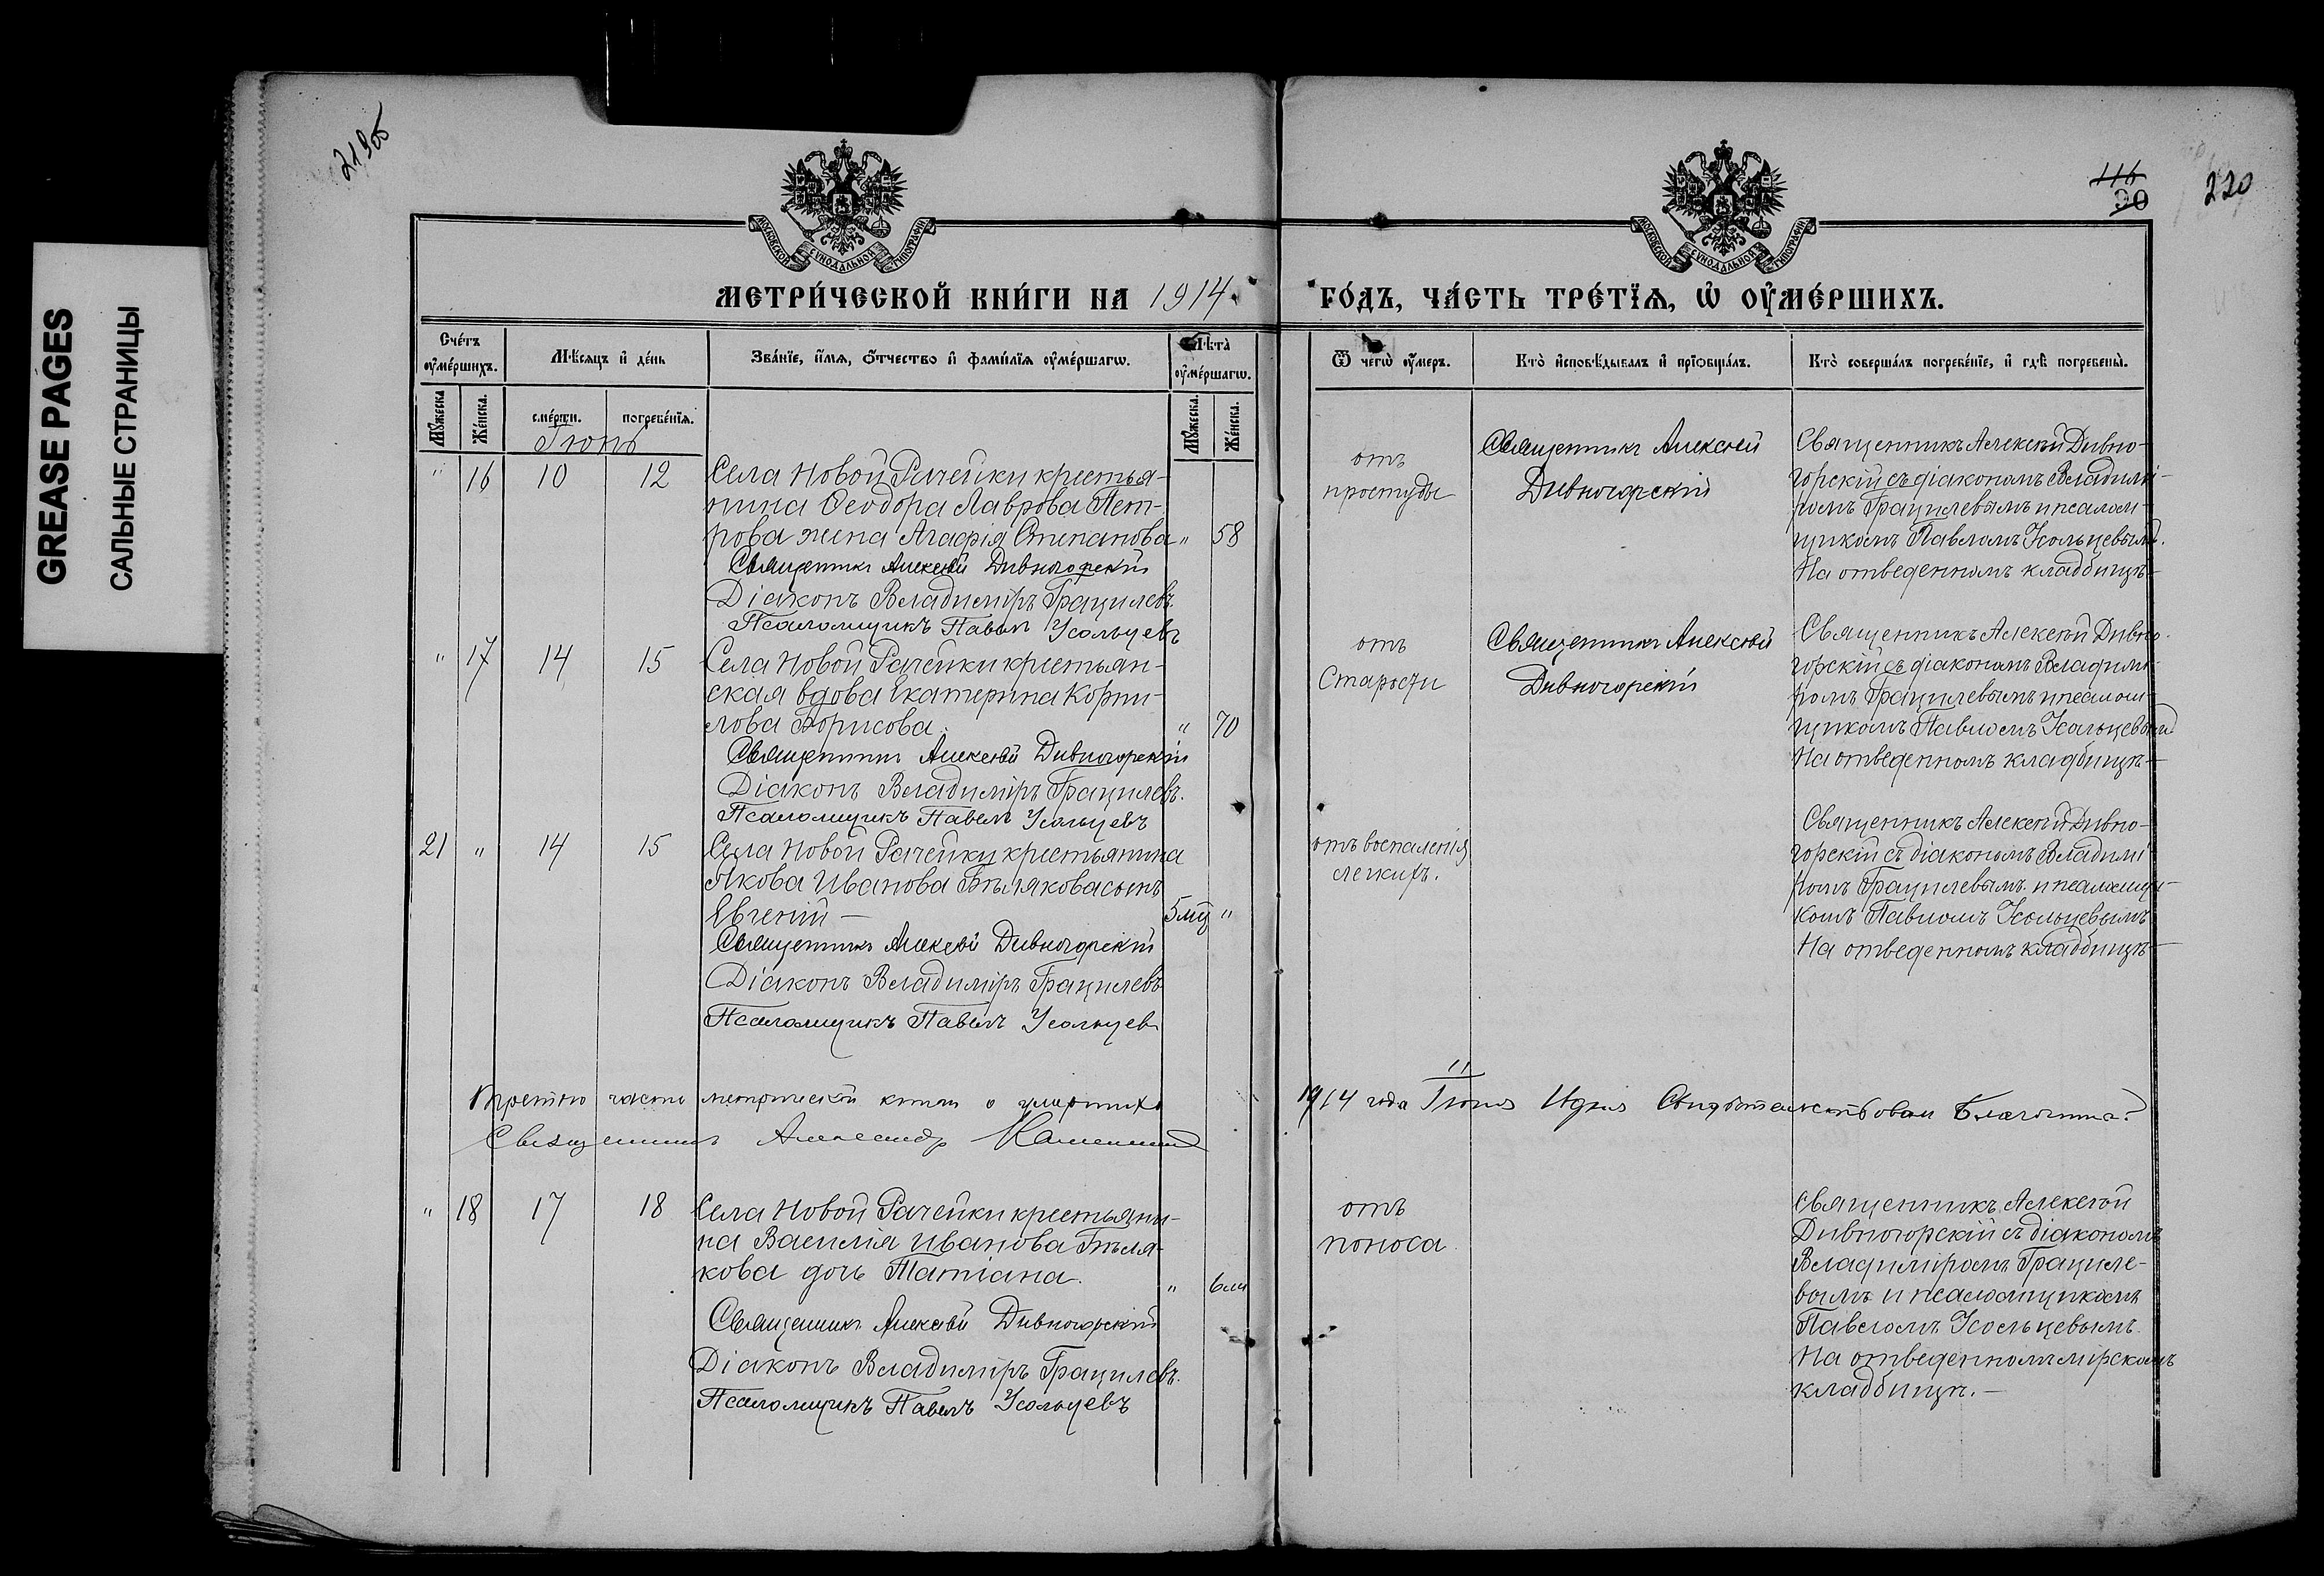 GREASE PAGES
САЛЬНЫЕ СТРАНИЦЫ
219об
116
90
220
МОСКОВСКОЙ СѴНОДАЛЬНОЙ ТИПОГРАФІИ
МОСКОВСКОЙ СѴНОДАЛЬНОЙ ТИПОГРАФІИ
МЕТРИ́ЧЕСКОЙ КНИ́ГИ НА 1914
ГО́ДЪ, ЧА́СТЬ ТРЕ́ТЇѦ, Ѡ҆ ОУ҆МЕ́РШИХЪ.
Сче́тъ оу҆ме́ршихъ.
Мѣ́сяцъ и҆ де́нь
Зва́нїе, и҆́мѧ, ѻ҆́тчество и҆ фами́лїѧ оу҆ме́ршагѡ.
Лѣ́та оу҆ме́ршагѡ.
Ѿ чегѡ̀ оу҆́меръ.
Кто̀ и҆сповѣ́дывалъ и҆ прїѡбща́лъ.
Кто̀ соверша́лъ погребе́нїе, и҆ гдѣ̀ погребены̀.
Мꙋ́жеска
Же́нска.
сме́рти.
погребе́нїѧ.
Мꙋ́жеска.
Же́нска.
Іюнь
" 16 10 12 Села Новой Рачейки крестья-
нина Ѳеодора Лаврова Пет-
рова жена Агафія Степанова " 58
Священникъ Алексѣй Дивногорскій
Діаконъ Владиміръ Грацилевъ.
Псаломщикъ Павелъ Усольцевъ
отъ
простуды
Священникъ Алексѣй
Дивногорскій
Священникъ Алексѣй Дивно-
горскій съ діакономъ Владимі-
ромъ Грацилевымъ и псалом-
щикомъ Павломъ Усольцевымъ.
На отведенномъ кладбищѣ-
" 17 14 15 Села Новой Рачейки крестьян-
ская вдова Екатерина Корни-
лова Борисова. " 70
Священникъ Алексѣй Дивногорскій
Діаконъ Владиміръ Грацилевъ.
Псаломщикъ Павелъ Усольцевъ
отъ
Старости
Священникъ Алексѣй
Дивногорскій
Священникъ Алексѣй Дивно-
горскій съ діакономъ Владимі-
ромъ Грацилевымъ и псалом-
щикомъ Павломъ Усольцевымъ
На отведенномъ кладбищѣ-
21 " 14 15 Села Новой Рачейки крестьянина
Якова Иванова Бѣлякова сынъ
Евгеній - 5 мц "
Священникъ Алексѣй Дивногорскій
Діаконъ Владиміръ Грацилевъ
Псаломщикъ Павелъ Усольцев
отъ воспаленія
легкихъ.
Священникъ Алексѣй Дивно-
горскій съ діакономъ Владимі
ромъ Грацилевымъ и псаломщи-
комъ Павломъ Усольцевымъ
На отведенномъ кладбищѣ-
Третью часть метрической книги о умершихъ
1914 года Іюня 11 дня Свидѣтельствовалъ Благочин.
Священникъ Александръ
" 18 17 18 Села Новой Рачейки крестьяни-
на Василія Иванова Бѣля-
кова дочь Татіана. " 6 м
Священникъ Алексѣй Дивногорскій
Діаконъ Владиміръ Грацилевъ.
Псаломщикъ Павелъ Усольцевъ
отъ
поноса
Священникъ Алексѣй
Дивногорскій съ діакономъ
Владиміромъ Грациле-
вымъ и псаломщикомъ
Павломъ Усольцевымъ.
На отведенномъ мірскомъ
кладбищѣ.-